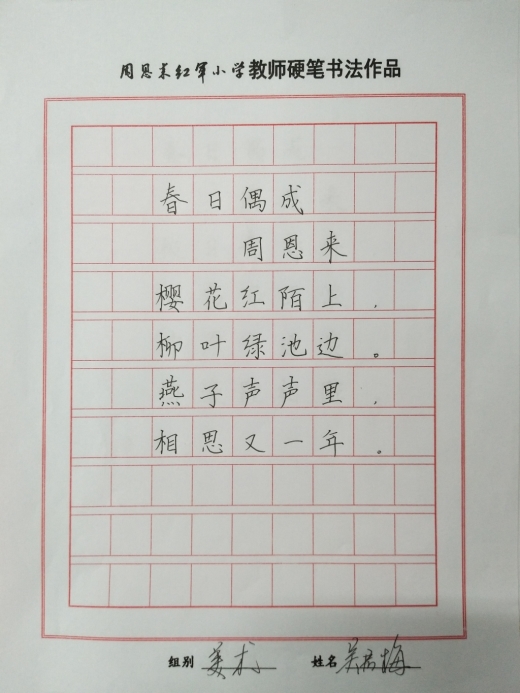 周恩来红军小学教师硬笔书法作品
春日偶成
周恩来
樱花红陌上，
柳叶绿池边。
燕子声声里，
相思又一年。
组别 美术 姓名 吴梅